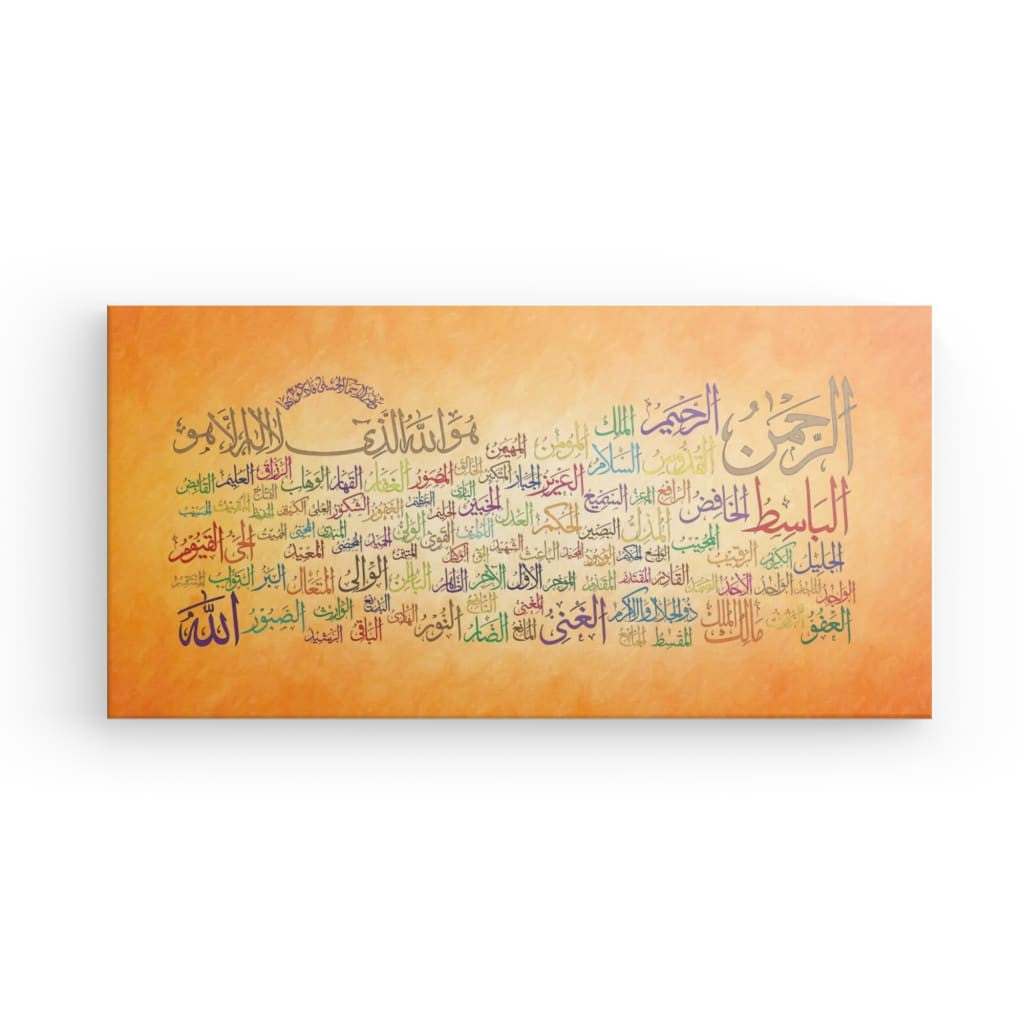 ولله الأسماء الحسنى فادعوه بها
هو الله الذي لا إله إلا هو
الرحمن الرحيم الملك القدوس السلام المؤمن المهيمن
العزيز الجبار المتكبر الخالق البارئ المصور الغفار القهار الوهاب الرزاق الفتاح العليم القابض
الباسط الخافض الرافع المعز المذل السميع البصير الحكم العدل اللطيف الخبير الحليم العظيم الغفور الشكور العلي الكبير الحفيظ المقيت الحسيب
الجليل الكريم الرقيب المجيب الواسع الحكيم الودود المجيد الباعث الشهيد الحق الوكيل القوي المتين الولي الحميد المحصي المبدئ المعيد المحيي المميت الحي القيوم
الواجد الماجد الواحد الأحد الصمد القادر المقتدر المقدم المؤخر الأول الآخر الظاهر الباطن الوالي المتعال البر التواب المنتقم
العفو الرؤوف مالك الملك ذو الجلال والإكرام المقسط الجامع الغني المغني المانع الضار النافع النور الهادي البديع الباقي الوارث الرشيد الصبور الله